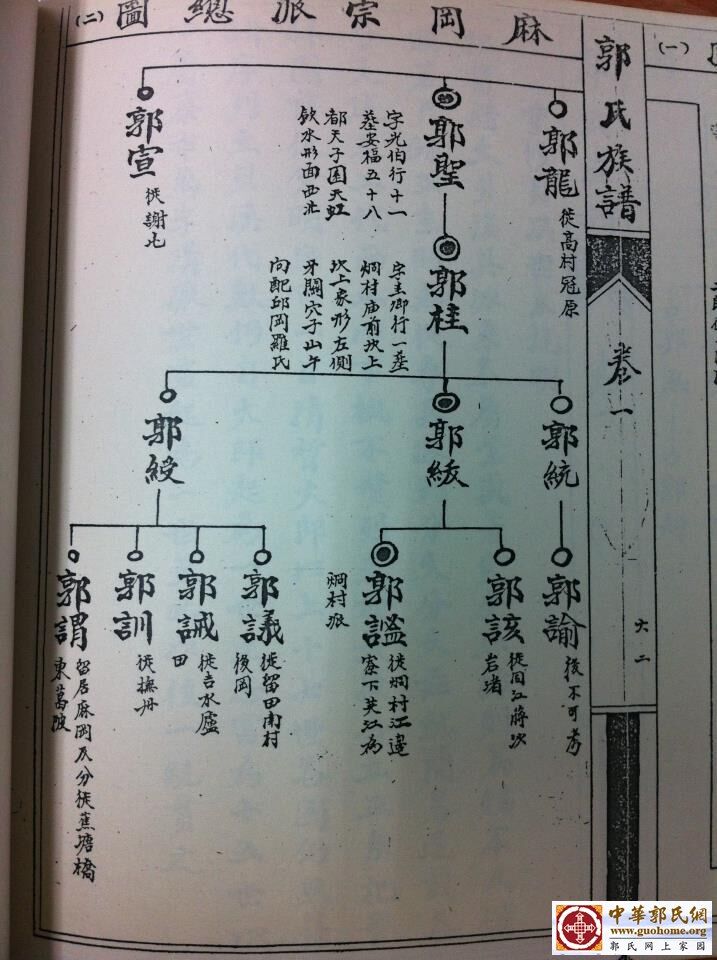 麻岡宗派總圖(二)
郭氏族譜
卷一
六二
(一)
郭龍
徙高村冠原
郭聖
字光伯行十一
墓安福五十八
都天子圍天虹
飲水形面西北
郭宣
徙謝北
郭桂
字圭卿行一墓
炯村庙前坎上
坎上象形左側
牙關穴子山午
向配邱岡羅氏
郭統
郭紱
郭綬
郭諭
後不可考
郭該
岩堵
郭謐
徙炯村江邊
寮下芙江為
炯村派
郭議
徙留田南村
後岡
郭誡
徙吉水廬
田
郭訓
徙撫丹
郭謂
留居麻岡及分徙蕉塘橋
東萬陂
中華郭氏網
www.guohome.org
郭氏网上家园